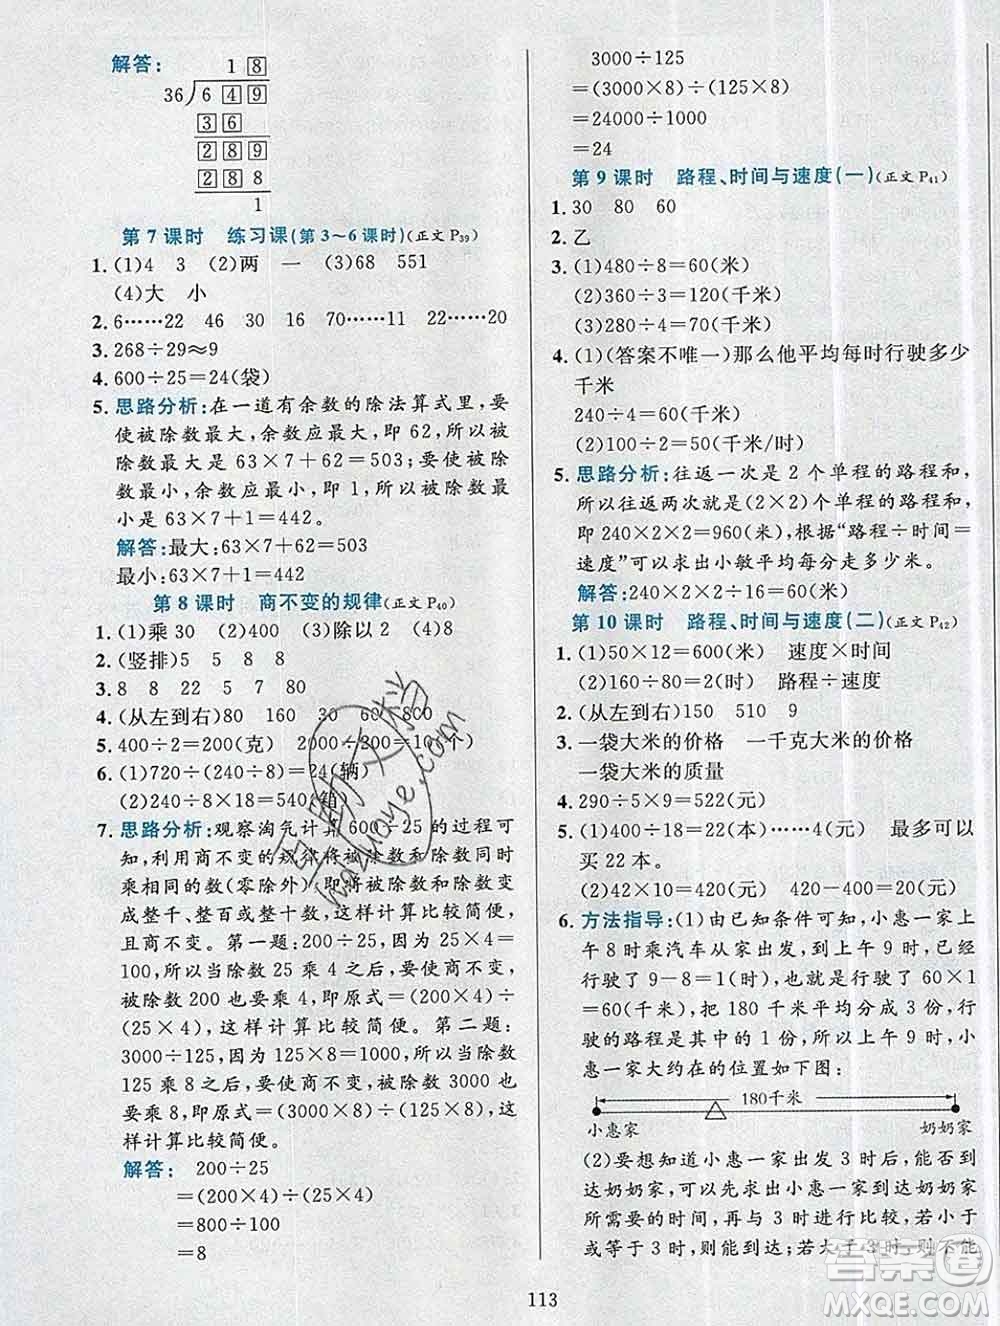 解答:
1 8
36 6 4 9
3 6
2 8 9
2 8 8
1
第 7 课时 练习课(第 3～6 课时)(正文 P39)
1. (1)4 3 (2)两 一 (3)68 551
(4)大 小
2. 6……22 46 30 16 70……11 22……20
3. 268÷29≈9
4. 600÷25=24(袋)
5. 思路分析:在一道有余数的除法算式里,要
使被除数最大,余数应最大,即 62,所以被
除数最大是 63×7+62=503;要使被除数
最小,余数应最小,即 1,所以被除数最
小是 63×7+1=442。
解答:最大:63×7+62=503
最小:63×7+1=442
第 8 课时 商不变的规律(正文 P40)
1. (1)乘 30 (2)400 (3)除以 2 (4)8
2. (竖排)5 5 8 8
3. 8 8 22 5 7 80
4. (从左到右)80 160 30 60 800
5. 400÷2=200(克) 2000÷200=10(个)
6. (1)720÷(240÷8)=24(辆)
(2)240÷8×18=540(箱)
7. 思路分析:观察淘气计算 600÷25 的过程可
知,利用商不变的规律将被除数和除数同时
乘相同的数(零除外),把被除数和除数变
成整千、整百或整十数,这样计算比较简便,
且商不变。第一题:200÷25,因为 25×4=
100,所以当除数 25 乘 4 之后,要使商不变,
被除数 200 也要乘 4,即原式=(200×4)÷
(25×4),这样计算比较简便。第二题:
3000÷125,因为 125×8=1000,所以当除数
125 乘 8 之后,要使商不变,被除数 3000 也
要乘 8,即原式=(3000×8)÷(125×8),这
样计算比较简便。
解答: 200÷25
=(200×4)÷(25×4)
=800÷100
=8
3000÷125
=(3000×8)÷(125×8)
=24000÷1000
=24
第 9 课时 路程、时间与速度(一)(正文 P41)
1. 30 80 60
2. 乙
3. (1)480÷8=60(米)
(2)360÷3=120(千米)
(3)1100÷10=110(千米)
4. (1)(答案不唯一)那么他平均每时行驶多少
千米
240÷4=60(千米)
(2)100÷2=50(千米/时)
5. 思路分析:往返一次是 2 个单程的路程和,
所以往返两次就是(2×2)个单程的路程和,
即 240×2×2=960(米),根据“路程÷时间=
速度”可以求出小敏平均每分走多少米。
解答:240×2×2÷16=60(米)
第 10 课时 路程、时间与速度(二)(正文 P42)
1. (1)50×12=600(米) 速度×时间
(2)1200÷80=15(分) 路程÷速度
2. (从左到右)150 510 9
3. 一袋大米的价格 一千克大米的价格
一袋大米的质量
4. 290÷5×9=522(元)
5. (1)400÷18=22(本)……4(元) 最多可以
买 22 本。
(2)42×10=420(元) 420-400=20(元)
6. 方法指导:(1)由已知条件可知,小惠一家上
午 8 时乘汽车从家出发,到上午 9 时,已经
行驶了 9-8=1(时),也就是行驶了 60×1
=60(千米),把 180 千米平均分成 3 份,行
驶的路程是其中的 1 份,所以上午 9 时,小
惠一家大约在的位置如下图:
180千米
小惠家 奶奶家
(2)要想知道小惠一家出发 3 时后,能否到
达奶奶家,可以先求出小惠一家到达奶奶家
所需要的时间,再与 3 时比较,若小于或等
于 3 时,则能到达;若大于 3 时,则不能
113
答案圈
MXQE.COM